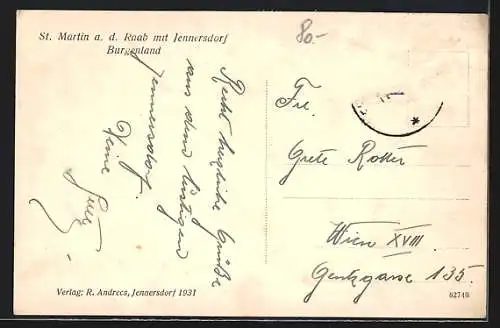 St. Martin a. d. Raab mit Jennersdorf
Burgenland
80.-
Recht herzliche Grüße
aus dem lustigen
Jennersdorf.
Deine
Frl.
Grete Rotter
Wien XVIII.
Gentzgasse 135.
Verlag: R. Andrecs, Jennersdorf 1931
62748